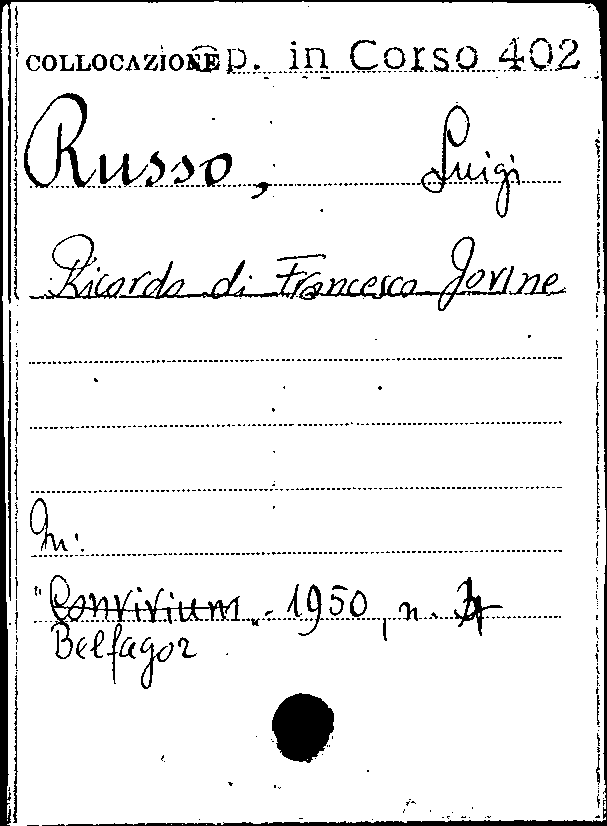 COLLOCAZIONE Op. in Corso 402
Russo, Luigi
Ricordo di Francesco Jovine
In:
"Convivium". - 1950, n. 4
Belfagor